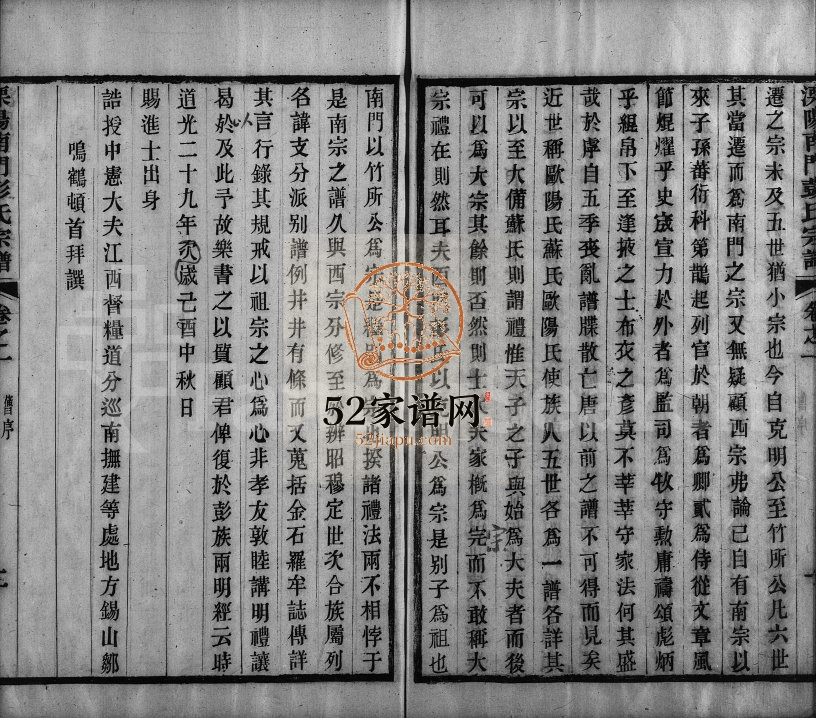 遷之宗未及五世猶小宗也今自克明公至竹所公凡六世
其當遷而爲南門之宗又無疑顧西宗弗論已自有南宗以
來子孫蕃衍科第鵲起列官於朝者爲卿貳爲侍從文章風
節焜燿乎史宬宣力於外者爲監司爲牧守勲庸禱頌彪炳
乎緄帛下至逢掖之士布衣之彥莫不莘莘守家法何其盛
哉於虖自五季喪亂譜牒散亡唐以前之譜不可得而見矣
近世稱歐陽氏蘇氏歐陽氏使族人五世各爲一譜各詳其
宗以至大備蘇氏則謂禮惟天子之子與始爲大夫者而後
可以爲大宗其餘則否然則士大夫家槪爲宗而不敢稱大
宗禮在則然耳夫西
氏以
明公爲宗是別子爲祖也
南門以竹所公爲宗是繼別爲宗也揆諸禮法兩不相悖于
是南宗之譜久與西宗分修至
辨昭穆定世次合族屬列
名諱支分派別譜例井井有條而又蒐括金石羅牟誌傳詳
其言行錄其規戒以祖宗之心爲心非孝友敦睦講明禮讓
曷以於及此予故樂書之以質顧君俾復於彭族兩明經云時
道光二十九年次歲己酉中秋日
賜進士出身
誥授中憲大夫江西督糧道分巡南撫建等處地方錫山鄒
鳴鶴頓首拜譔
溧陽南門彭氏宗譜
卷之一
舊序
溧陽南門彭氏宗譜
卷之一
宗
52家谱网
52jiapu.com